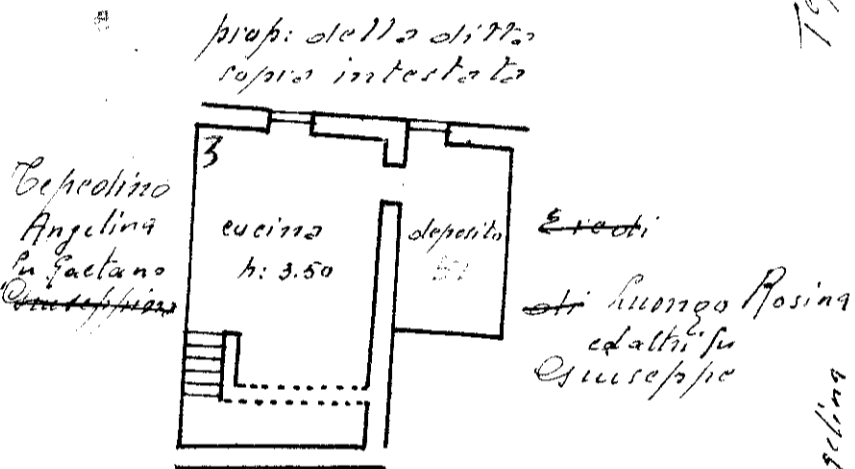 prop: della ditta
sopra intestata
3
Tepedino
Angelina
fu Gaetano
Giuseppina
cucina
h: 3.50
deposito
Eredi
di Luongo Rosina
ed altri fu
Giuseppe
gelina